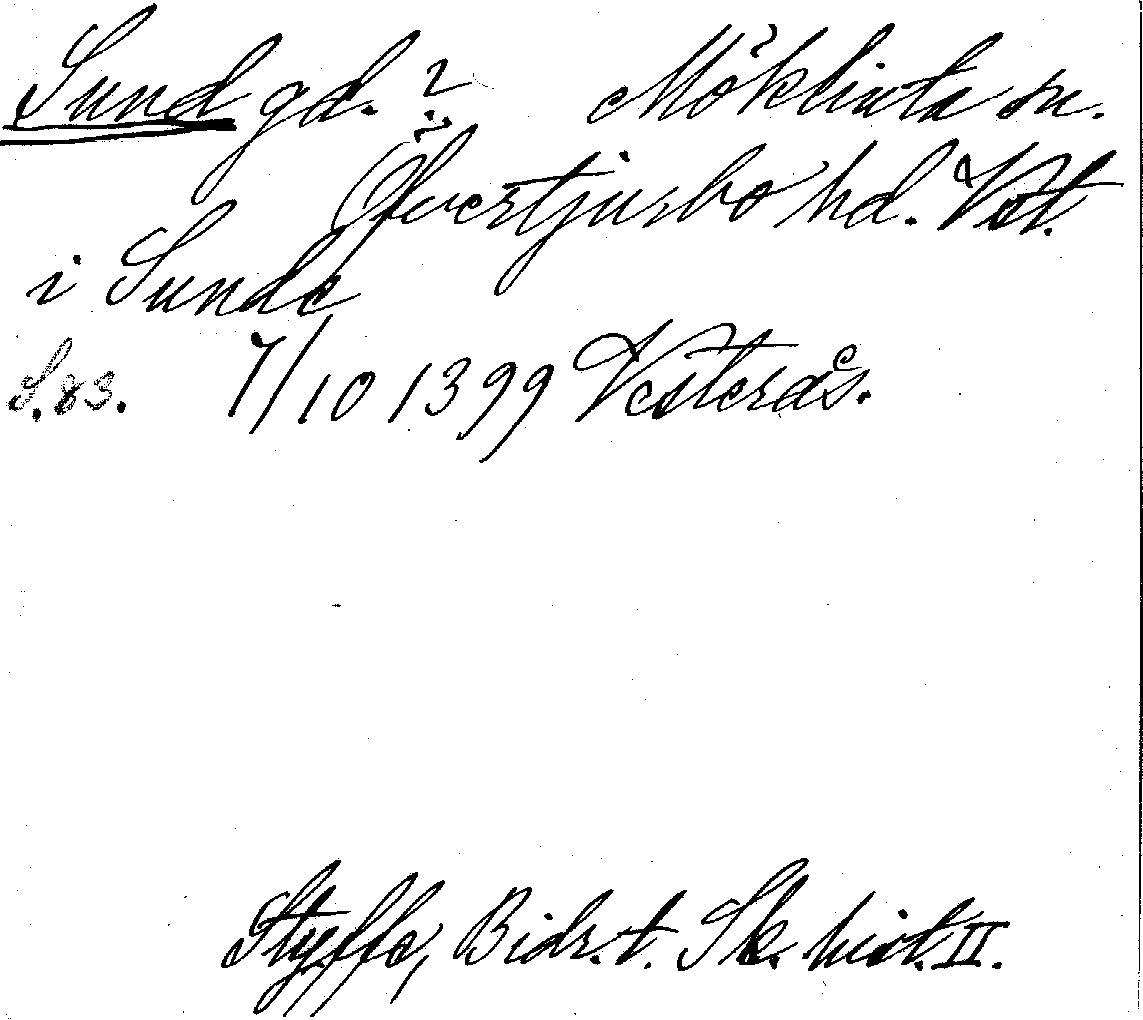 Sund gd. ? Möklinta sn.
Öfvertjurbo hd. Vstl.
i Sunde
S. 83. 7/10 1399 Vesterås.
Styffe, Bidr. t. Sk. hist. II.